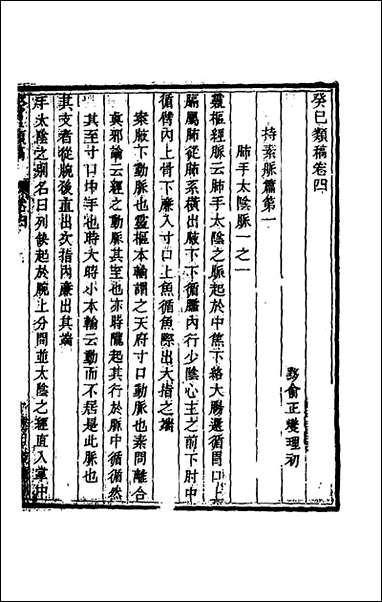 癸巳類稿卷四
黟俞正燮理初
持素脈篇第一
肺手太陰脈一之一
靈樞經脈云肺手太陰之脈起於中焦下絡大腸還循胃口上
膈屬肺從肺系橫出腋下下循臑內行少陰心主之前下肘中
循臂內上骨下廉入寸口上魚循魚際出大指之端
案腋下動脈也靈樞本輸謂之天府寸口動脈也素問離合
真邪論云經之動脈其至也亦時隴起其行於脈中循循然
其至寸口中手也時大時小本輸云動而不居是此脈也
其支者從腕後直出次指內廉出其端
手太陰之別名曰列缺起於腕上分間並太陰之經直入掌中